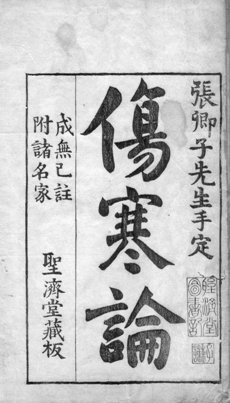 張卿子先生手定
傷寒論
成無已註
附諸名家
聖濟堂藏板